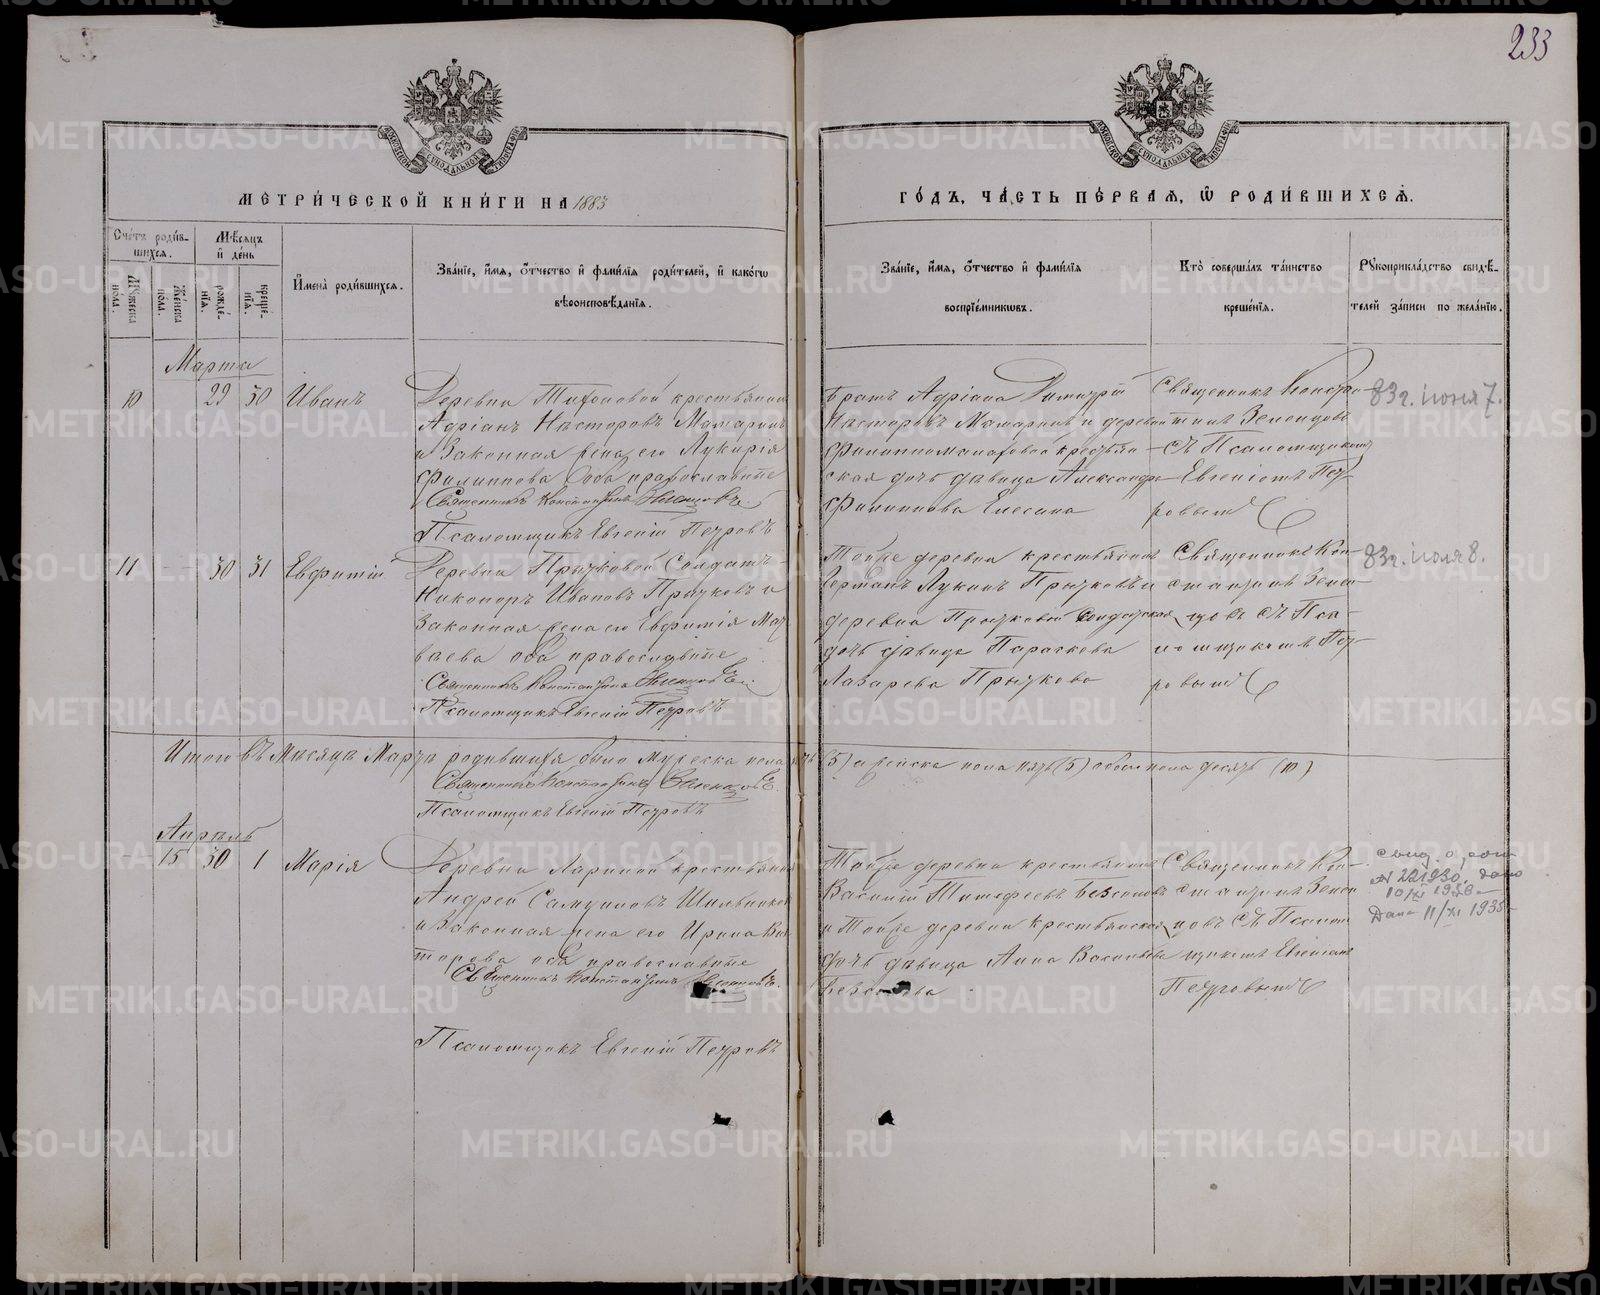 233
МЕТРИ́ЧЕСКОЙ КНИ́ГИ НА 1883
ГО́ДЪ, ЧА́СТЬ ПЕ́РВАЯ, Ѡ РОДИ́ВШИХСѦ.
Сче́тъ роди́вшихся.
Мѣ́сяцъ и де́нь
Му́жеска по́ла.
Же́нска по́ла.
рожде́нїя.
креще́нїя.
И҆мена̀ роди́вшихся.
Зва́нїе, и҆́мя, ѻ҆́тчество и҆ фами́лїя роди́телей, и҆ како́гѡ
вѣроисповѣ́данїя.
Зва́нїе, и҆́мя, ѻ҆́тчество и҆ фами́лїя
воспрїе́мниковъ.
Кто̀ соверша́лъ та́инство
креще́нїя.
Рꙋкоприкла́дство свидѣ́-
телей за́писи по жела́нїю.
Марта
10 29 30 Иванъ
Деревни крестьянинъ
Адріанъ Несторовъ
и законная жена его Лукирія
Филиппова Оба православные
Священникъ Константинъ
Псаломщикъ Евгеній Петровъ
Братъ Адріана Димитрій
Несторовъ и деревни
крестьян-
ская дочь девица Александра
Филиппова Елесина
Священникъ Констан-
тинъ
съ Псаломщикомъ
Евгеніемъ Пет-
ровымъ
83г. июня 7.
11 30 31 Евфимій
Деревни Прытковой Солдатъ
Никоноръ Ивановъ Прытковъ и
законная жена его Евфимія Мат-
ваева оба православные
Священникъ Константинъ
Псаломщикъ Евгеній Петровъ
Тойже деревни крестьянинъ
Лукинъ Прытковъ и
деревни Прытковой Солдатская
дочь девица Параскева
Лазарева Прыткова
Священникъ Кон-
стантинъ
съ Пса-
ломщикомъ Пет-
ровымъ
83г. июля 8.
Итого въ Месяце Марте родившихся было мужеска пола пять (5) и женска пола пять (5) обоего пола десять (10)
Священникъ Константинъ
Псаломщикъ Евгеній Петровъ
Апрель
15 30 1 Марія
Деревни Лариной крестьянинъ
Андрей Самуиловъ
и законная жена его Ирина Вик-
торова оба православные
Священникъ Константинъ
Псаломщикъ Евгеній Петровъ
Тойже деревни крестьянинъ
Василій Тимофеевъ
и Тойже деревни крестьянская
дочь девица Анна Васильева
Священникъ Кон-
стантинъ
съ Псалом-
щикомъ Евгеніемъ
Петровымъ
Дана 11/XI 1935